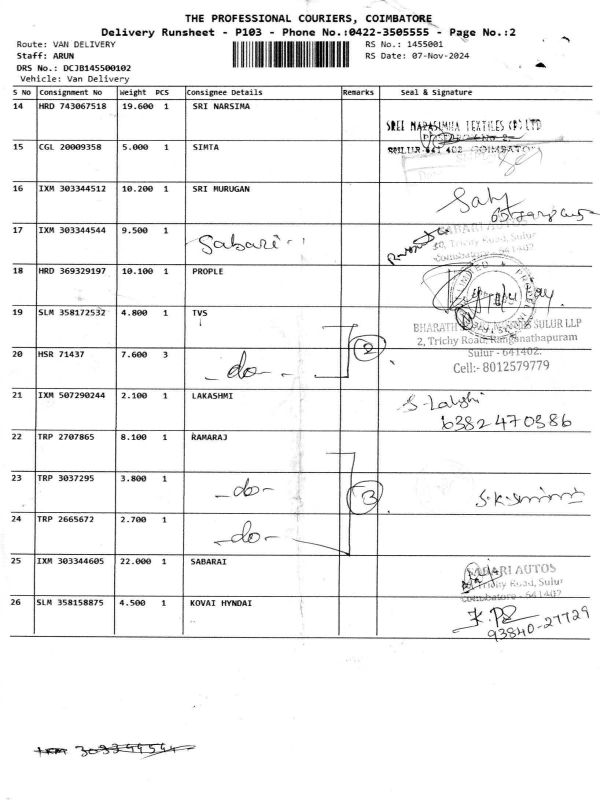 THE PROFESSIONAL COURIERS, COIMBATORE
Delivery Runsheet - P103 - Phone No.:0422-3505555 - Page No.:2
Route: VAN DELIVERY
RS No.: 1455001
Staff: ARUN
RS Date: 07-Nov-2024
DRS No.: DCJB145500102
Vehicle: Van Delivery
S No Consignment No Weight PCS Consignee Details Remarks Seal & Signature
14 HRD 743067518 19.600 1 SRI NARSIMA
SREE NARASIMHA TEXTILES (P) LTD
15 CGL 20009358 5.000 1 SIMTA
SULUR-641 402 COIMBATORE
16 IXM 303344512 10.200 1 SRI MURUGAN
17 IXM 303344544 9.500 1
Sabari
SABARI AUTOS
30, Trichy Road, Sulur
Coimbatore - 641402
18 HRD 369329197 10.100 1 PROPLE
19 SLM 358172532 4.800 1 TVS
BHARATH SULUR LLP
2, Trichy Road, Ranganathapuram
20 HSR 71437 7.600 3
-do-
2
Sulur - 641402.
Cell:- 8012579779
21 IXM 507290244 2.100 1 LAKASHMI
S. Lakshi
6382470386
22 TRP 2707865 8.100 1 RAMARAJ
23 TRP 3037295 3.800 1
-do-
3
24 TRP 2665672 2.700 1
-do-
25 IXM 303344605 22.000 1 SABARAI
SABARI AUTOS
Trichy Road, Sulur
Coimbatore - 641402
26 SLM 358158875 4.500 1 KOVAI HYNDAI
93840-27729